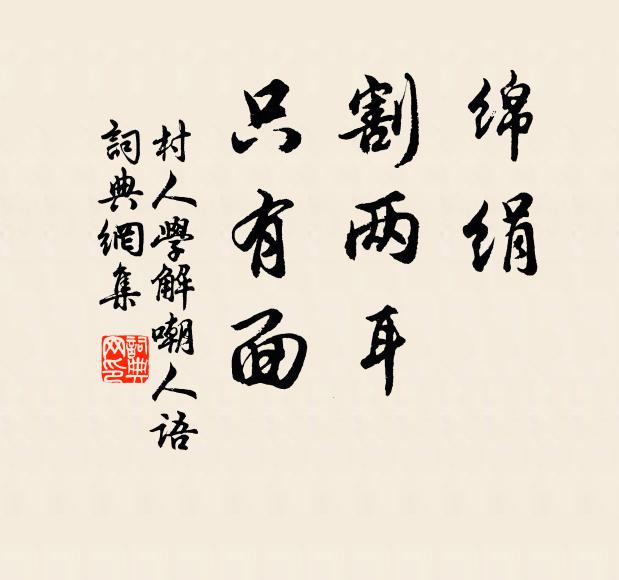 绵绢
割两耳
只有面
村人學解嘲人語
詞典網集
詞典网印